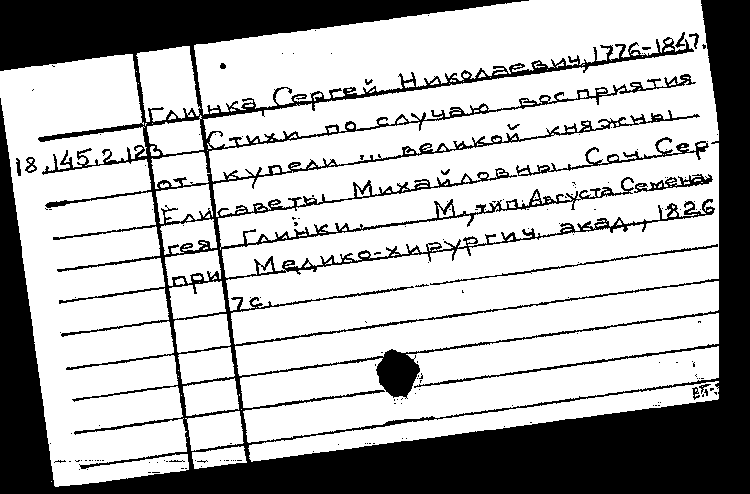 Глинка, Сергей Николаевич, 1776-1847.
18.145.2.123 Стихи по случаю восприятия
от купели ... великой княжны
Елисаветы Михайловны. Соч. Сер-
гея Глинки. М., тип. Августа Семена
при Медико-хирургич. акад., 1826
7 с.